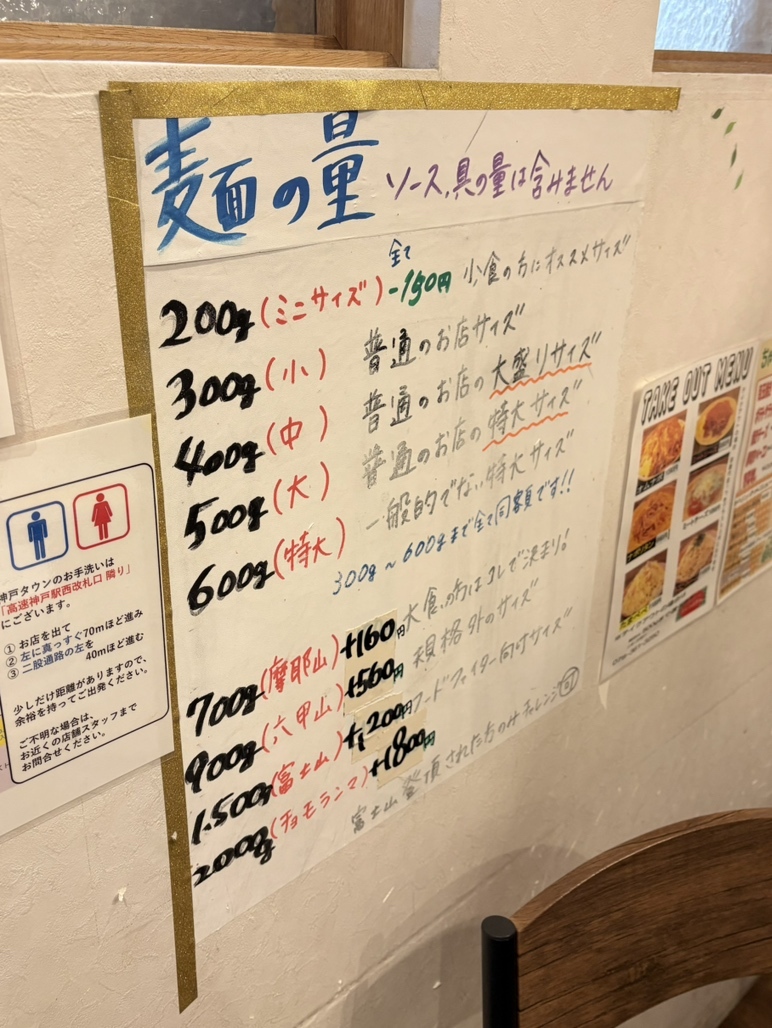 麺の量 ソース,具の量は含みません
200g(ミニサイズ) 全て-150円 小食の方にオススメサイズ
300g(小) 普通のお店サイズ
400g(中) 普通のお店の大盛リサイズ
500g(大) 普通のお店の特大サイズ
600g(特大) 一般的でない特大サイズ
300g～600gまで全て同額です!!
700g(摩耶山) +160円 大食いの方はコレで決まり!
900g(六甲山) +560円 規格外のサイズ
1.500g(富士山) +1,200円 フードファイター向けサイズ
2000g(チョモランマ) +1800円
富士山登頂された方のみチャレンジ可
神戸タウンのお手洗いは
「高速神戸駅西改札口 隣り」
にございます。
① お店を出て
② 左に真っすぐ70mほど進み
③ 二股通路の左を
40mほど進む
少しだけ距離がありますので、
余裕を持ってご出発ください。
ご不明な場合は、
お近くの店舗スタッフまで
お問合せください。
TAKE OUT MENU